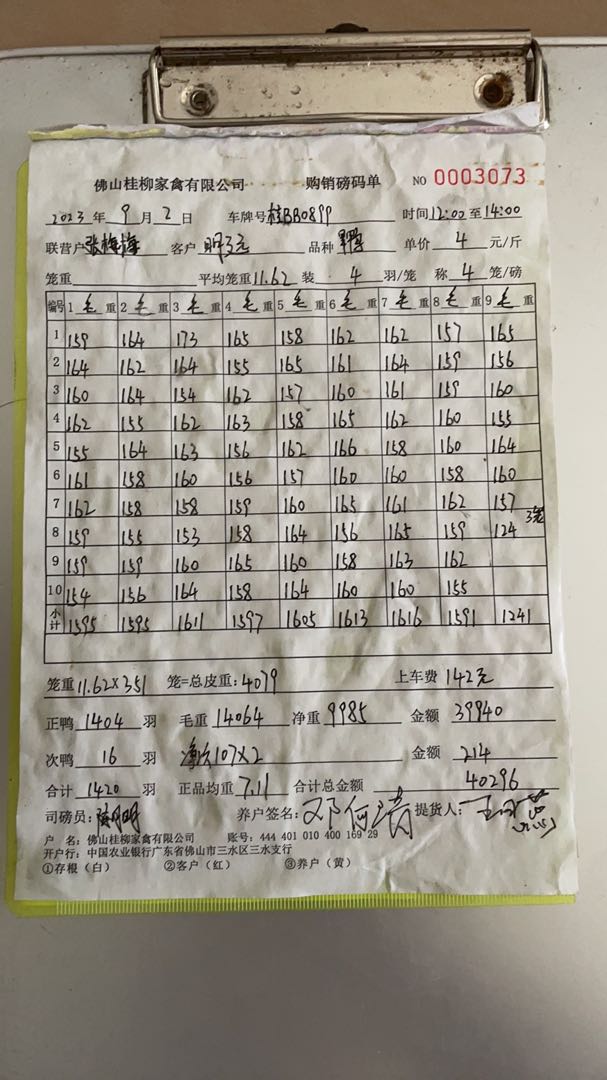 佛山桂柳家禽有限公司 购销磅码单 NO 0003073
2023年9月2日 车牌号桂BB0899 时间12:00至14:00
联营户 客户 品种 单价 4 元/斤
笼重 平均笼重11.62 装 4 羽/笼 称 4 笼/磅
编号 1毛重 2毛重 3毛重 4毛重 5毛重 6毛重 7毛重 8毛重 9毛重
1 159 164 173 165 158 162 162 157 165
2 164 162 164 155 165 161 164 159 156
3 160 164 154 162 157 160 161 159 160
4 162 155 162 163 158 165 162 160 155
5 155 164 163 156 162 166 158 160 164
6 161 158 160 156 157 160 160 158 160
7 162 158 158 159 160 165 161 162 157
8 159 155 153 158 164 156 165 159 124 3笼
9 159 159 160 165 160 158 163 162
10 154 156 164 158 164 160 160 155
小计 1595 1595 1611 1597 1605 1613 1616 1591 1241
笼重11.62×351 笼=总皮重:4079 上车费 142元
正鸭 1404 羽 毛重 14064 净重 9985 金额 39940
次鸭 16 羽 107×2 金额 214
合计 1420 羽 正品均重 7.11 合计总金额 40296
司磅员: 养户签名: 提货人:
户 名:佛山桂柳家禽有限公司 账号:444 401 010 400 169 29
开户行:中国农业银行广东省佛山市三水区三水支行
①存根(白) ②客户(红) ③养户(黄)